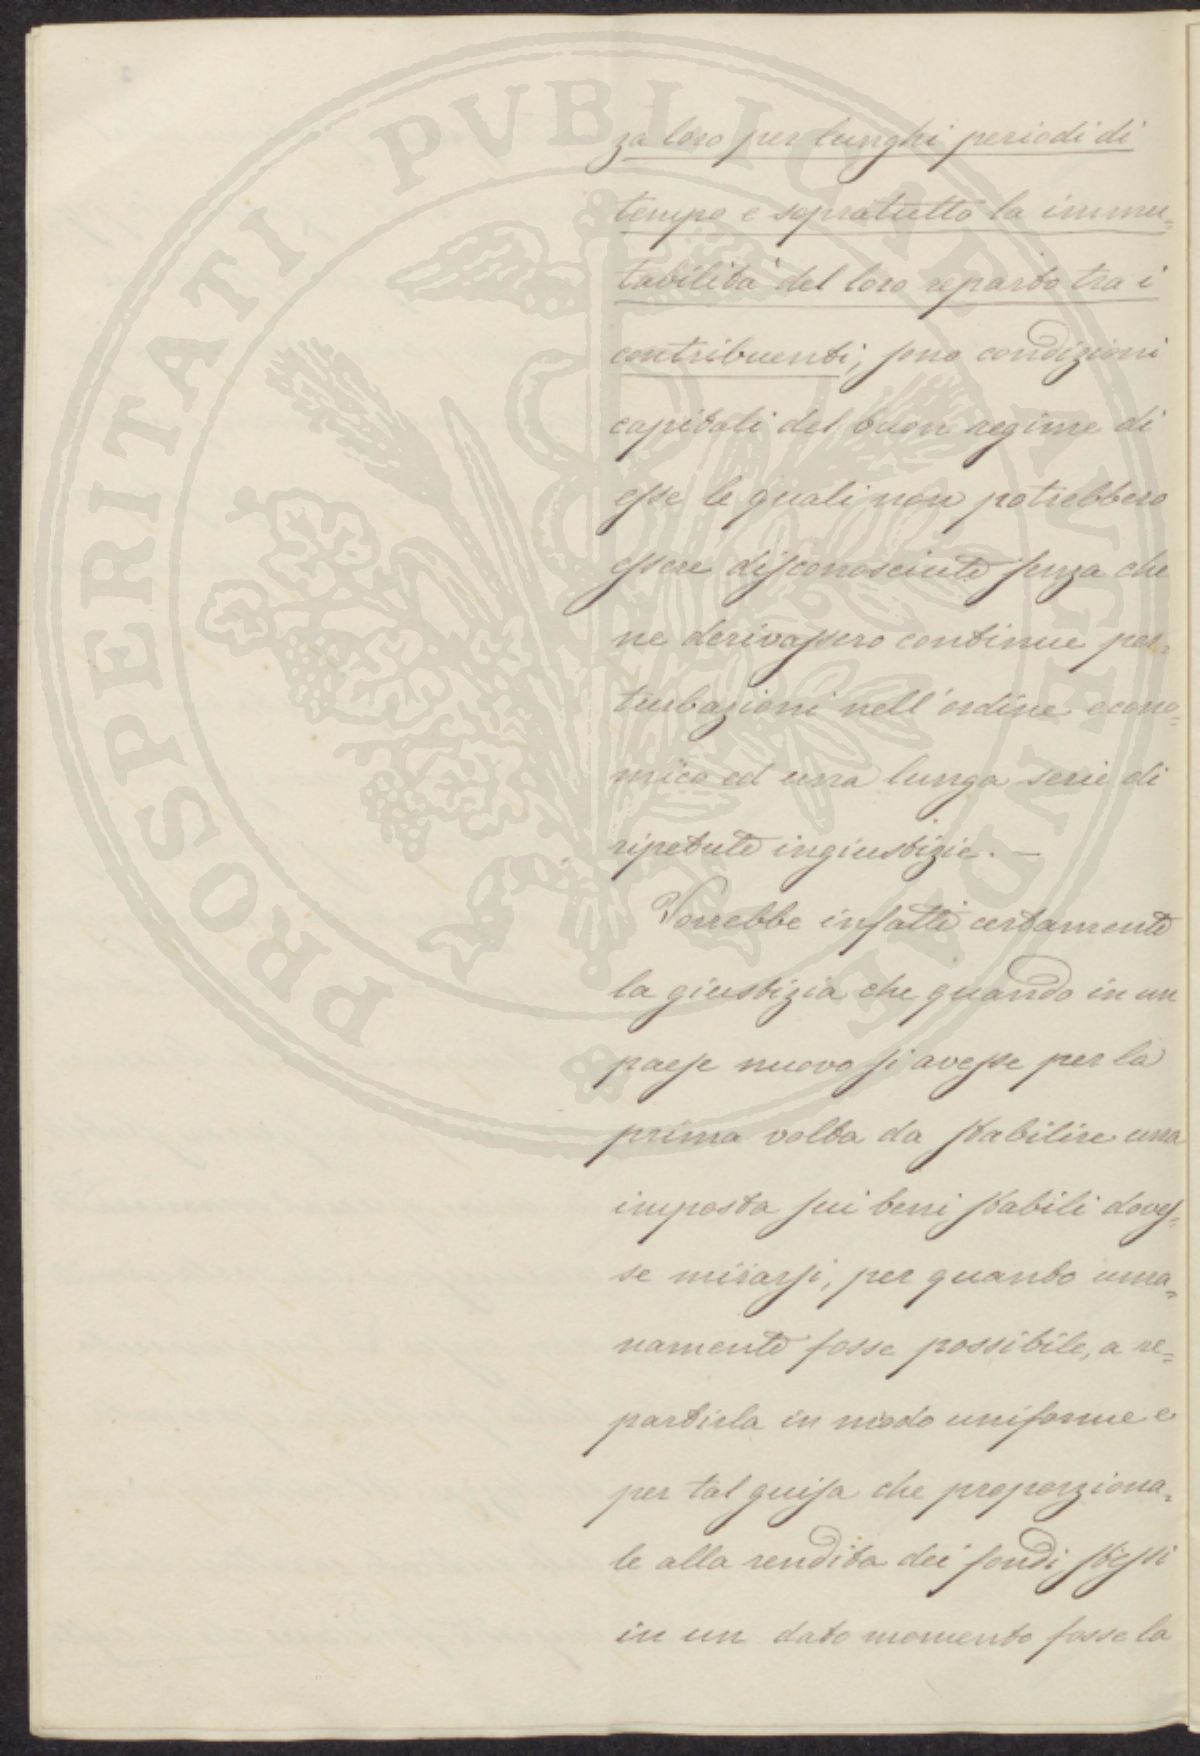 PROSPERITATI PVBLICAE AVGENDAE
za loro per lunghi periodi di
tempo e sopratutto la immu=
tabilità del loro reparto tra i
contribuenti; sono condizioni
capitali del buon regime di
esse le quali non potrebbero
essere disconosciute senza che
ne derivassero continue per=
turbazioni nell'ordine econo=
mico ed una lunga serie di
ripetute ingiustizie. —
Vorrebbe infatti certamente
la giustizia che quando in un
paese nuovo si avesse per la
prima volta da stabilire una
imposta sui beni stabili doves=
se mirarsi, per quanto uma=
namente fosse possibile, a re=
partirla in modo uniforme e
per tal guisa che proporziona=
le alla rendita dei fondi stessi
in un dato momento fosse la